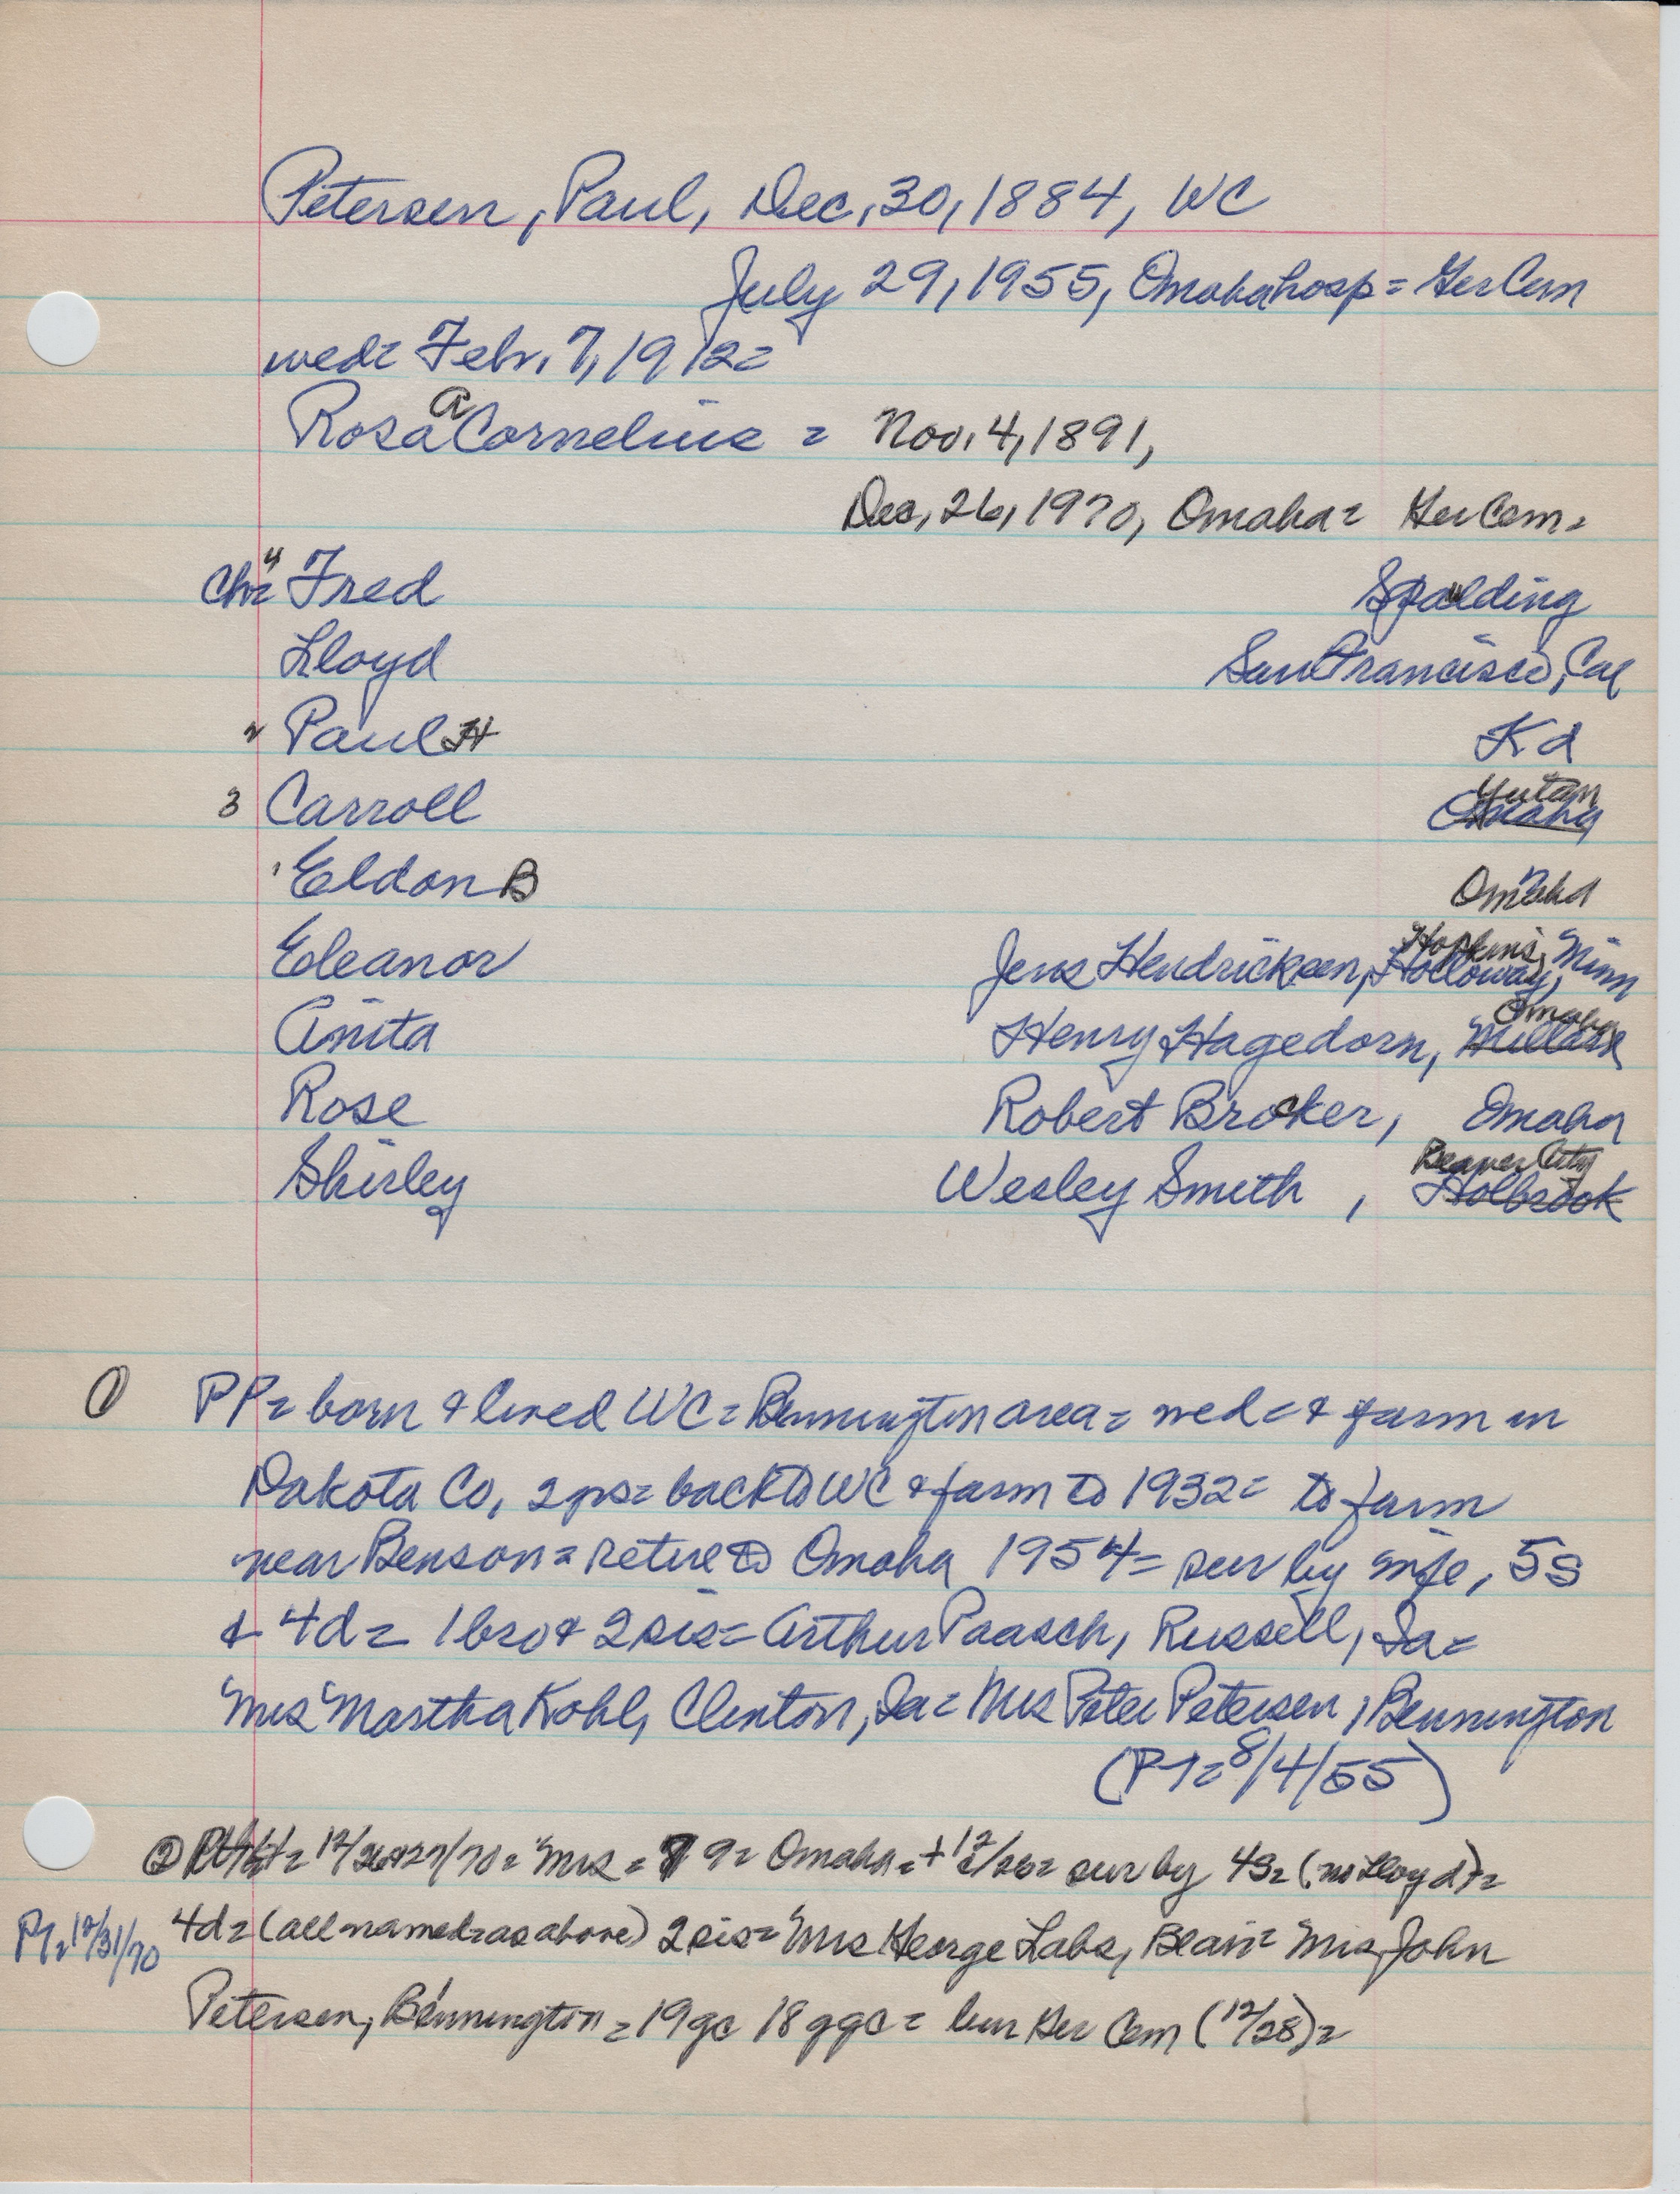 Petersen, Paul, Dec, 30, 1884, WC
July 29, 1955, Omaha hosp = Ger Cem
wed = Febr. 7, 1912 =
Rosa A Cornelius = Nov. 4, 1891,
Dec, 26, 1970, Omaha = Ger Cem =
Ch = 4 Fred Spalding
Lloyd San Francisco, Cal
2 Paul H Kd
3 Carroll Omaha Yutan
1 Eldon B Omaha
Eleanor Jens Hendricksen, Holloway, Hopkins, Minn
Anita Henry Hagedorn, Millard Omaha
Rose Robert Brocker, Omaha
Shirley Wesley Smith, Holbrook Beaver City
① PP = born & lived WC = Bennington area = wed = & farm in
Dakota Co, 2 yrs = back to WC & farm to 1932 = to farm
near Benson = retire to Omaha 1954 = sur by wife, 5s
& 4d = 1 bro & 2 sis = Arthur Paasch, Russell, Ia =
Mrs Martha Kohl, Clinton, Ia = Mrs Peter Petersen, Bennington
(PT = 8/4/55)
② = 12/26&27/70 = Mrs = 79 = Omaha = + 12/26 = sur by 4s = (no Lloyd) =
PT = 12/31/70
4d = (all named = as above) 2 sis = Mrs George Labs, Blair = Mrs John
Petersen, Bennington = 19 gc 18 ggc = bur Ger Cem (12/28) =